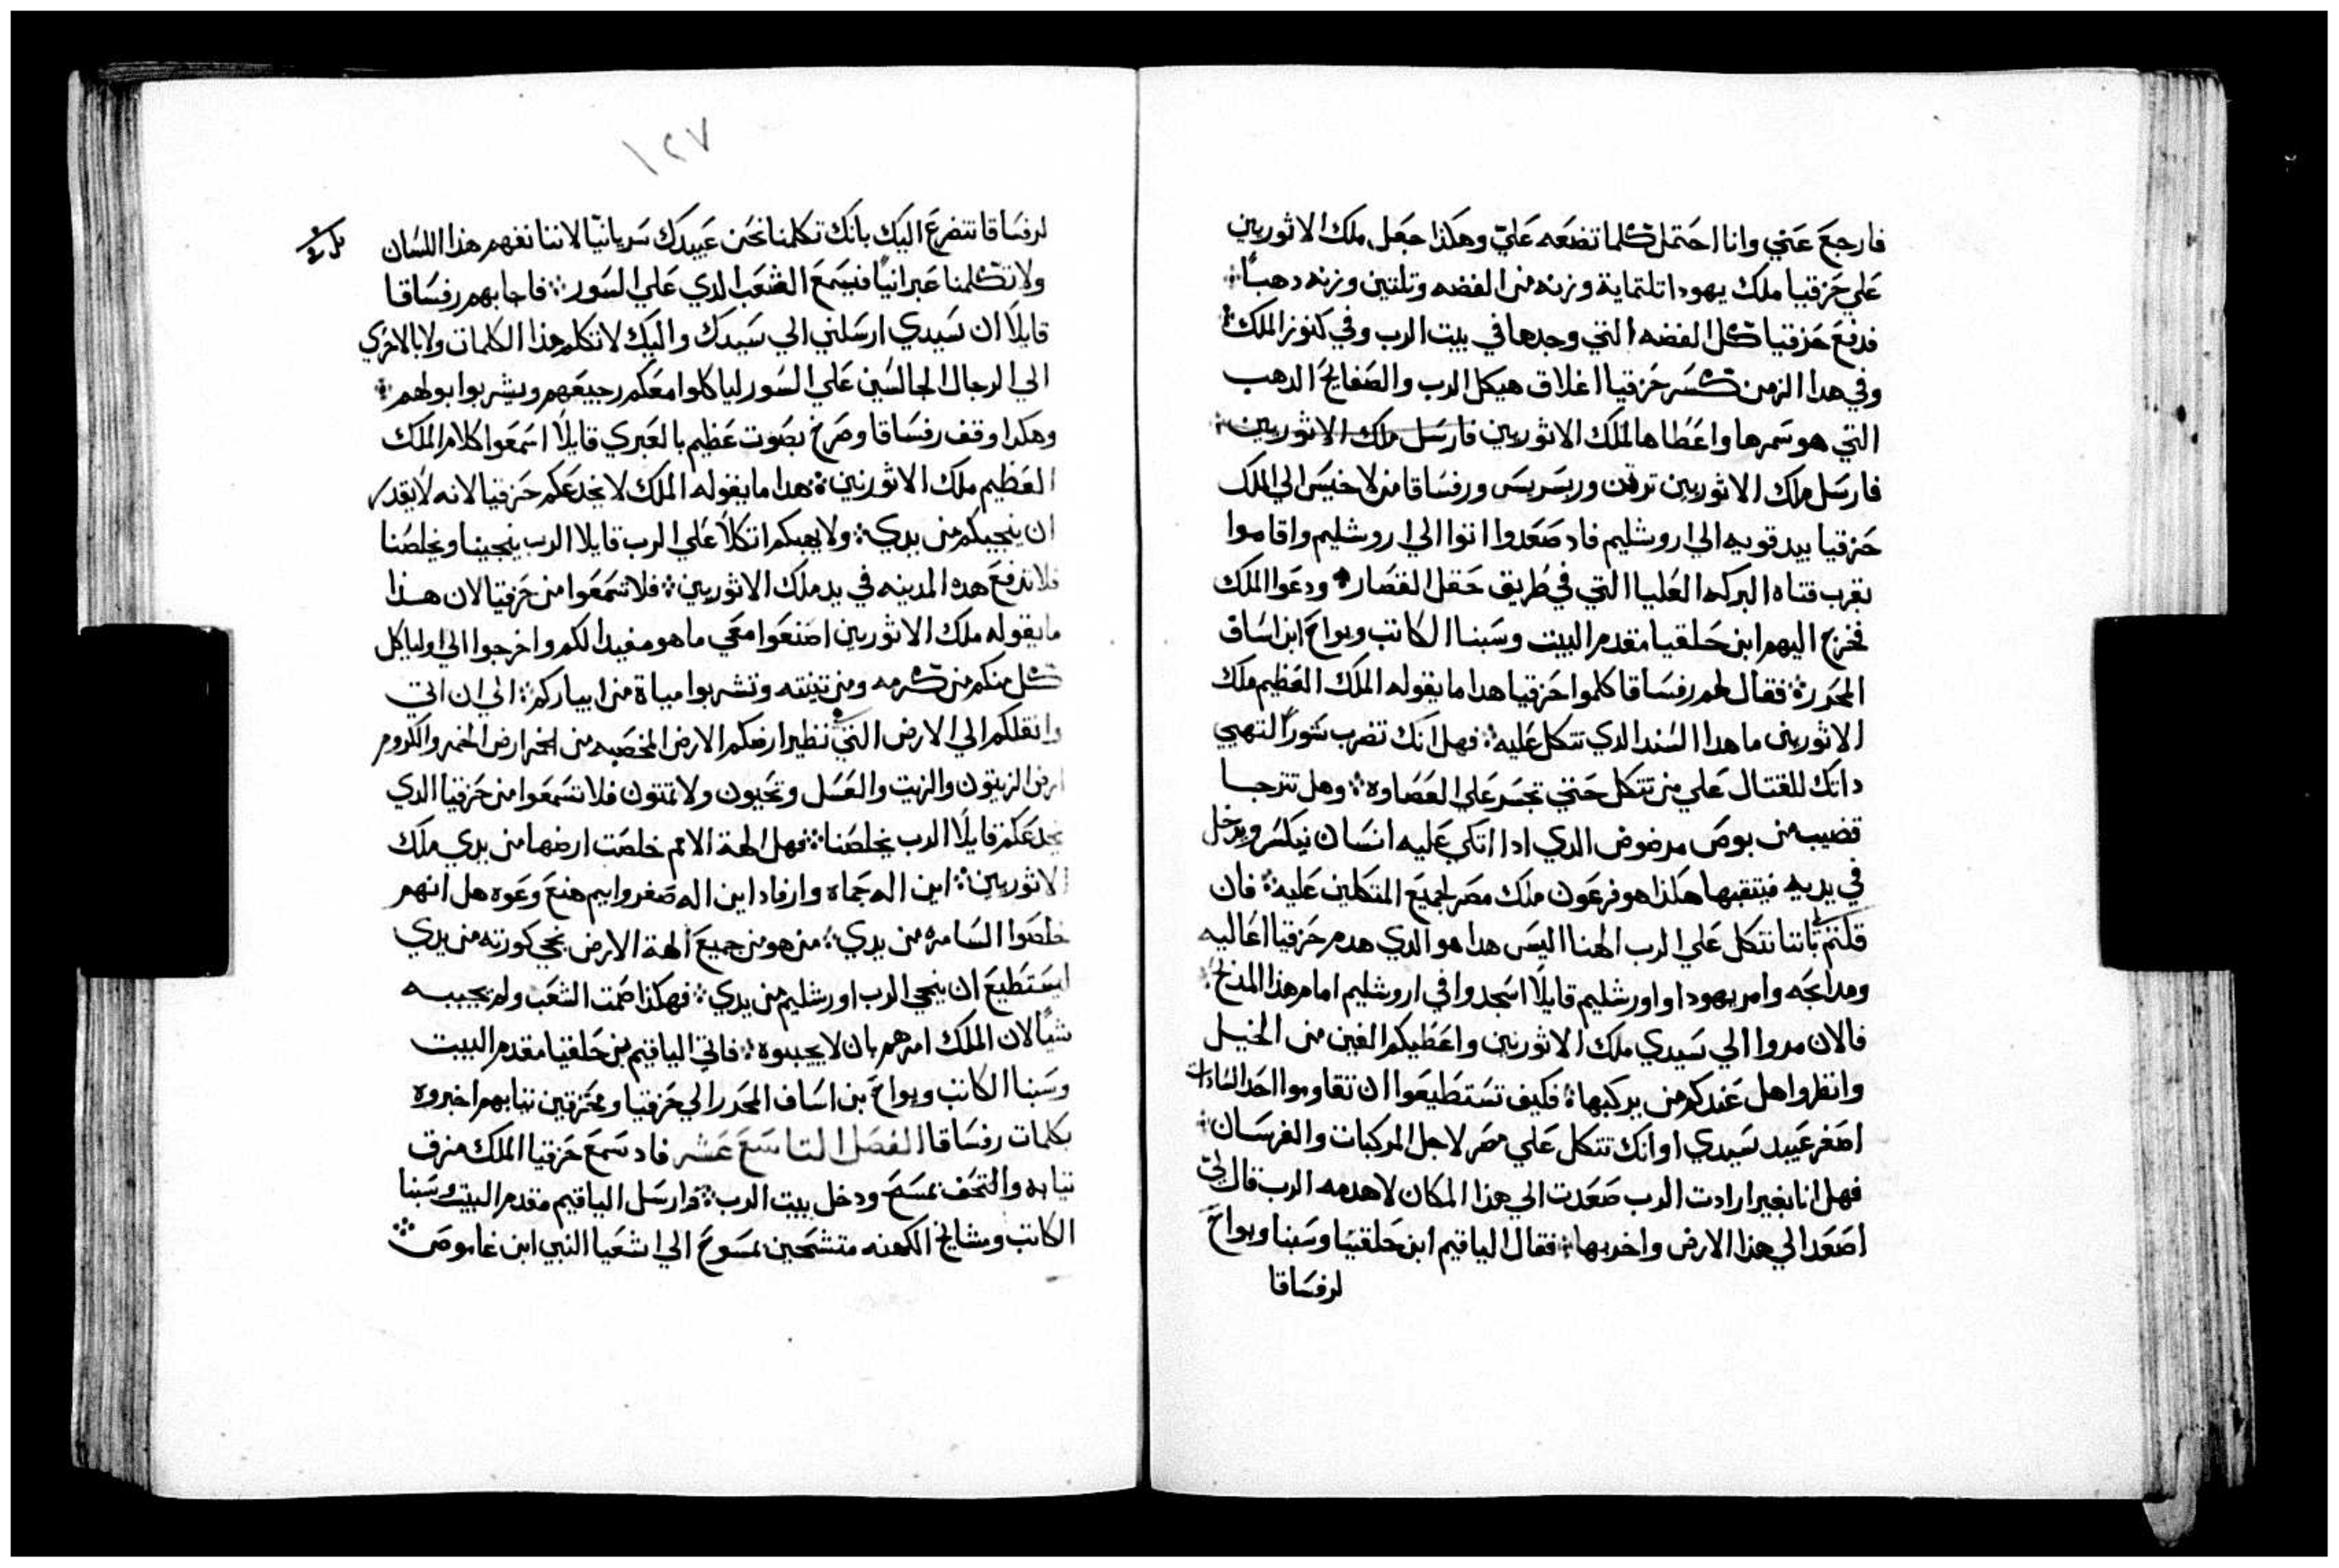 فارجع عني وانا احتمل كلما تضعه علي وهكذا جعل ملك الاثوريين
علي حزقيا ملك يهودا تلتماية وزنه من الفضه وتلتين وزنه دهبًا
فدفع حزقيا كل الفضه التي وجدها في بيت الرب وفي كنوز الملك
وفي هدا الزمن كسر حزقيا اغلاق هيكل الرب والصفايح الدهب
التي هو سمرها واعطاها لملك الاثوريين فارسل ملك الاثوريين
فارسل ملك الاثوريين ترتن وربسريس ورفساقا من لاخيس الي الملك
حزقيا بيد قويه الي اروشليم فاد صعدوا اتوا الي اروشليم واقاموا
بقرب قناه البركه العليا التي في طريق حقل القصار ودعوا الملك
فخرج اليهم ابن حلقيا مقدم البيت وسبنا الكاتب ويواح ابن اساف
المحدر فقال لهم رفساقا كلموا حزقيا هدا ما يقوله الملك العظيم ملك
الاثوريين ما هدا السند الدي تتكل عليه فهل انك تضرب شورًا لتهيي
داتك للقتال علي من تتكل حتي تجسر علي العصاوه وهل تترجا
قضيب من بوص مرضوض الدي ادا اتكي عليه انسان ينكسر ويدخل
في يديه فيتقبها هكذا هو فرعون ملك مصر لجميع المتكلين عليه فان
قلتم باننا نتكل علي الرب الهنا اليس هدا هو الدي هدم حزقيا اعاليه
ومدابحه وامر يهودا واورشليم قايلًا اسجدوا في اروشليم امام هذا المذبح
فالان مروا الي سيدي ملك الاثوريين واعطيكم الفين من الخيل
وانظروا هل عندكم من يركبها فكيف تستطيعوا ان تقاوموا احد السادات
اصغر عبيد سيدي او انك تتكل علي مصر لاجل المركبات والفرسان
فهل انا بغير ارادت الرب صعدت الي هذا المكان لاهدمه الرب قال لي
اصعد الي هذا الارض واخربها فقال الياقيم ابن حلقيا وسبنا ويواح
لرفساقا
١٢٧
لرفساقا نتضرع اليك بانك تكلمنا نحن عبيدك سريانيًا لاننا نفهم هذا اللسان
ولا تكلمنا عبرانيًا فيسمع الشعب الدي علي السور فاجابهم رفساقا
قايلًا ان سيدي ارسلني الي سيدك واليك لاتكلم هذا الكلمات ولا بالاحري
الي الرجال الجالسين علي السور لياكلوا معكم رجيعهم ويشربوا بولهم
وهكدا وقف رفساقا وصرخ بصوت عظيم بالعبري قايلًا اسمعوا كلام الملك
العظيم ملك الاثوريين هدا ما يقوله الملك لا يخدعكم حزقيا لانه لا يقدر
ان ينجيكم من يدي ولا يهبكم اتكالًا علي الرب قايلا الرب ينجينا ويخلصنا
فلا تدفع هده المدينه في يد ملك الاثوريين فلا تسمعوا من حزقيا لان هذا
ما يقوله ملك الاثوريين اصنعوا معي ما هو مفيدا لكم واخرجوا الي اولياكل
كل منكم من كرمه ومن تينته وتشربوا مياة من ابياركم الي ان اتي
وانقلكم الي الارض التي نظير ارضكم الارض المخصبه من الخبز ارض الخمر والكروم
ارض الزيتون والزيت والعسل وتحيون ولا تمتون فلا تسمعوا من حزقيا الدي
يخدعكم قايلًا الرب يخلصنا فهل الهة الامم خلصت ارضها من يدي ملك
الاثوريين اين اله حماه وارفاد اين اله صفروايم هنع وعوه هل انهم
خلصوا السامره من يدي من هو من جميع الهة الارض نجي كورته من يدي
ايستطيع ان ينجي الرب اورشليم من يدي فهكذا صمت الشعب ولم يجيبه
شيًا لان الملك امرهم بان لا يجيبوه فاتي الياقيم بن حلقيا مقدم البيت
وسبنا الكاتب ويواح بن اساف المحدر الي حزقيا ومخزقين تيابهم اخبروه
بكلمات رفساقا الفصل التاسع عشر فاد سمع حزقيا الملك مزق
تيابه والتحف بمسح ودخل بيت الرب وارسل الياقيم مقدم البيت وسبنا
الكاتب ومشايخ الكهنه متشحين بمسوح الي اشعيا النبي ابن عاموص